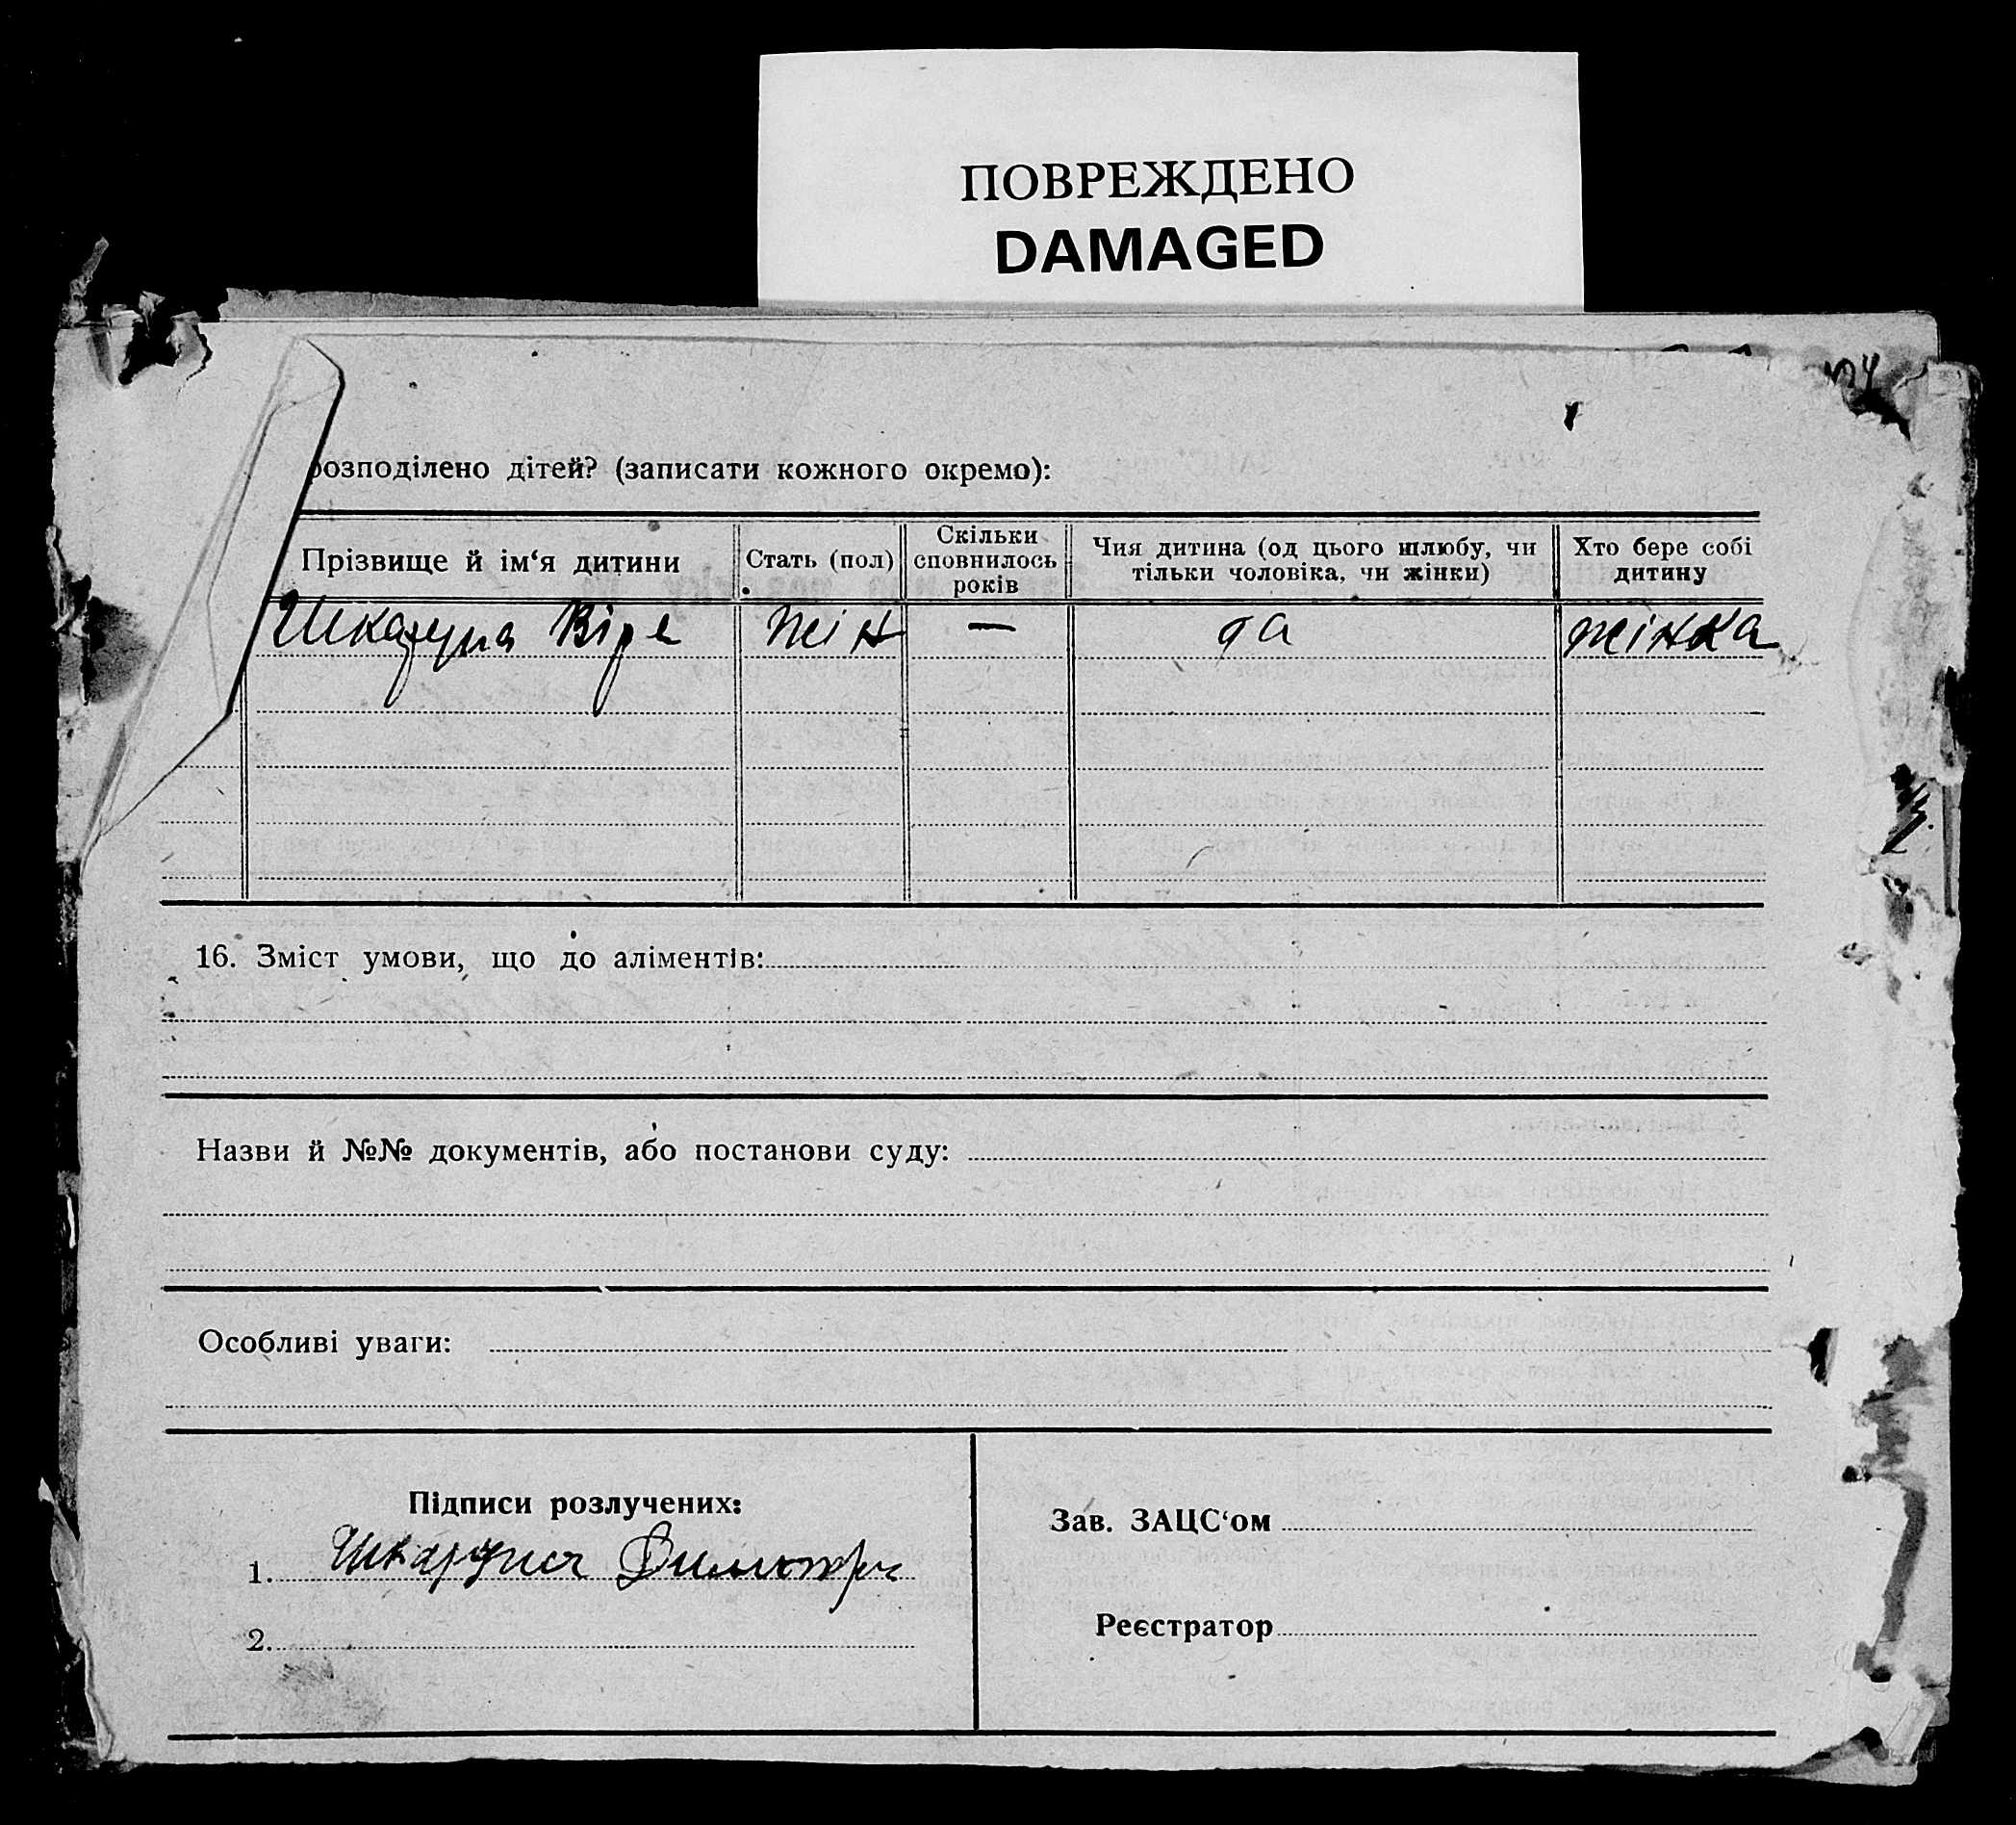 ПОВРЕЖДЕНО
DAMAGED
розподілено дітей? (записати кожного окремо):
Прізвище й ім‘я дитини
Стать (пол)
Скільки сповнилось років
Чия дитина (од цього шлюбу, чи тільки чоловіка, чи жінки)
Хто бере собі дитину
Віра жін — да жінка
16. Зміст умови, що до аліментів:
Назви й №№ документів, або постанови суду:
Особливі уваги:
Підписи розлучених:
Зав. ЗАЦС‘ом
1.
2.
Реєстратор